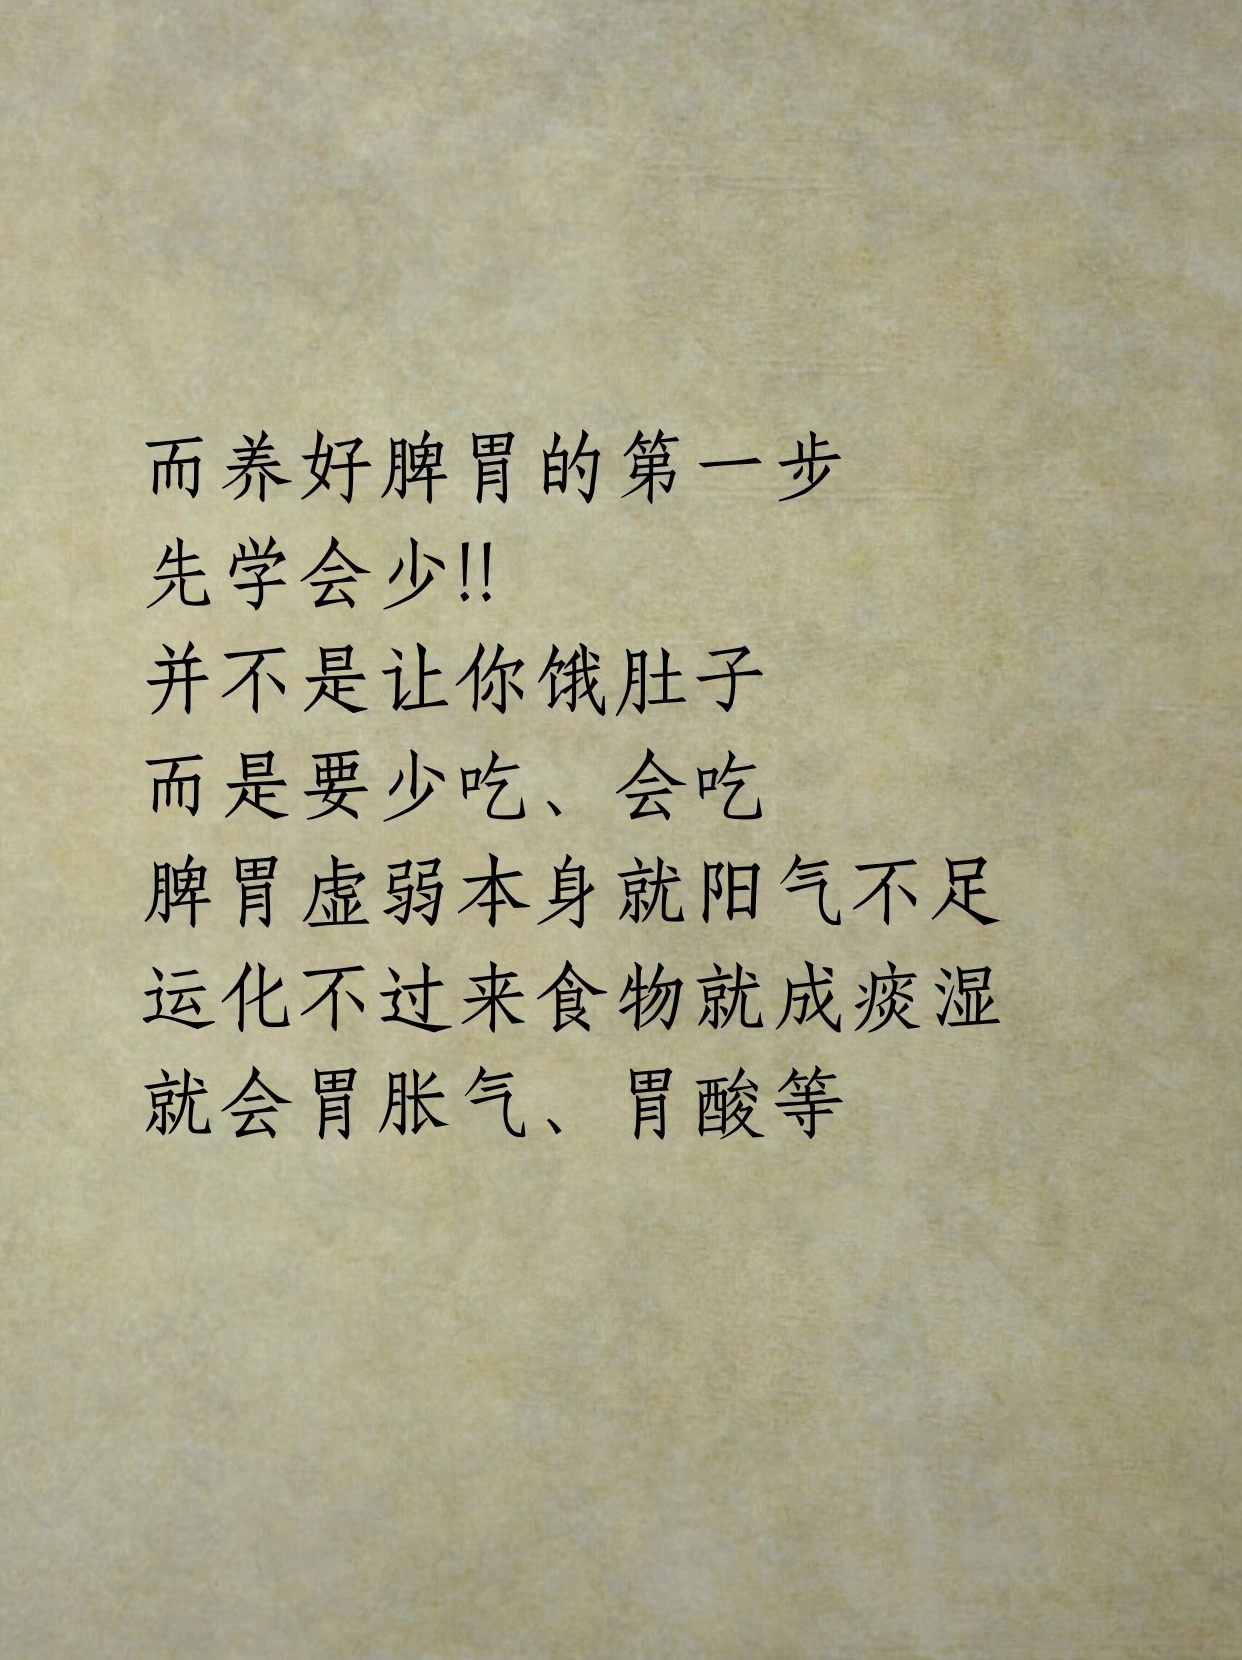 而养好脾胃的第一步
先学会少!!
并不是让你饿肚子
而是要少吃、会吃
脾胃虚弱本身就阳气不足
运化不过来食物就成痰湿
就会胃胀气、胃酸等